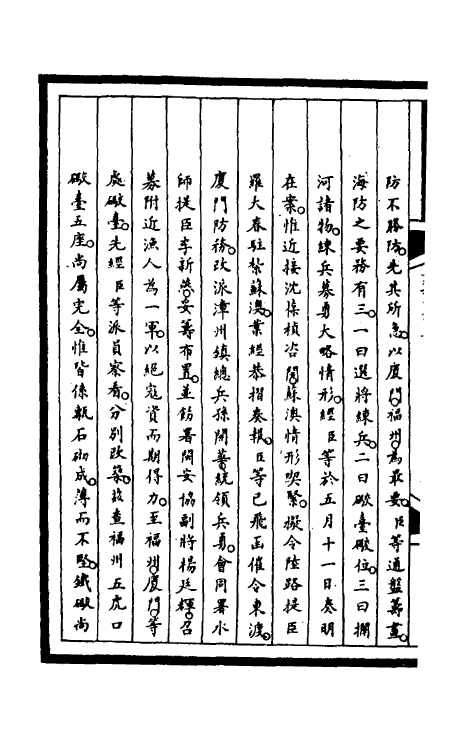 防不勝防。先其所急。以廈門。福州。為最要。臣等通盤籌畫。
海防之要務有三。一曰選將練兵。二曰礮臺礮位。三曰攔
河諸物。練兵募勇大略情形。經臣等於五月十一日奏明
在案。惟近接沈葆楨咨開。蘇澳情形喫緊。擬令陸路提臣
羅大春駐紮蘇澳。業經恭摺奏報。臣等已飛函催令東渡。
廈門防務。改派漳州鎮總兵孫開華統領兵勇。會同署水
師提臣李新燕。妥籌布置。並飭署閩安協副將楊廷輝。召
募附近漁人為一軍。以絕寇資而期得力。至福州。廈門。等
處礮臺。先經臣等派員察看。分別改築。茲查福州五虎口
礮臺五座。尚屬完全。惟皆係甎石砌成。薄而不堅。鐵礮尚